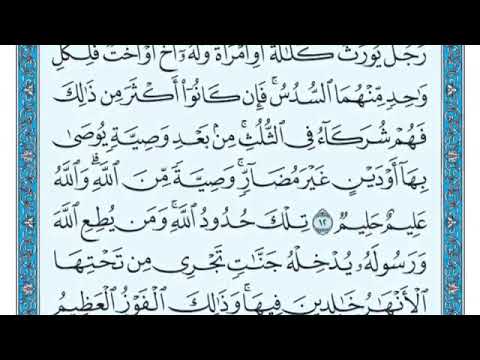 رَجُلٌ يُورَثُ كَلَٰلَةً أَوِ ٱمْرَأَةٌ وَلَهُۥٓ أَخٌ أَوْ أُخْتٌ فَلِكُلِّ
وَٰحِدٍ مِّنْهُمَا ٱلسُّدُسُ ۚ فَإِن كَانُوٓا۟ أَكْثَرَ مِن ذَٰلِكَ
فَهُمْ شُرَكَآءُ فِى ٱلثُّلُثِ ۚ مِنۢ بَعْدِ وَصِيَّةٍ يُوصَىٰ
بِهَآ أَوْ دَيْنٍ غَيْرَ مُضَآرٍّ ۚ وَصِيَّةً مِّنَ ٱللَّهِ ۗ وَٱللَّهُ
عَلِيمٌ حَلِيمٌ ١٢ تِلْكَ حُدُودُ ٱللَّهِ ۚ وَمَن يُطِعِ ٱللَّهَ
وَرَسُولَهُۥ يُدْخِلْهُ جَنَّٰتٍ تَجْرِى مِن تَحْتِهَا
ٱلْأَنْهَٰرُ خَٰلِدِينَ فِيهَا ۚ وَذَٰلِكَ ٱلْفَوْزُ ٱلْعَظِيمُ